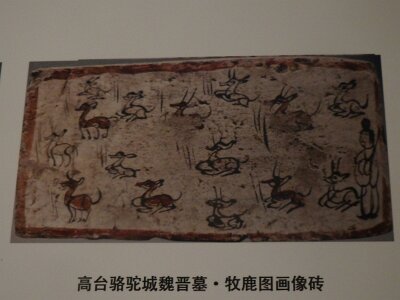 高台骆驼城魏晋墓·牧鹿图画像砖